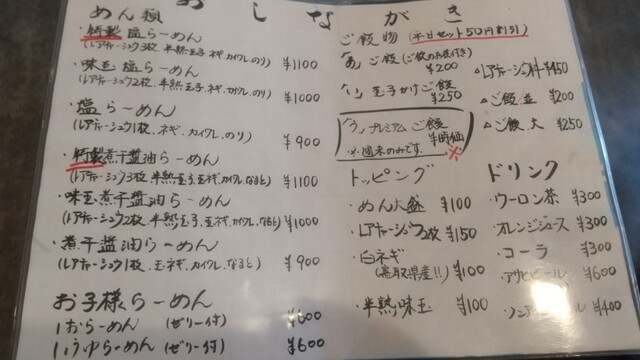 おしながき
めん類
・特製 塩らーめん
(レアチャーシュウ3枚、半熟玉子、ネギ、カイワレ、のり) ¥1100
・味玉 塩らーめん
(レアチャーシュウ2枚、半熟玉子、ネギ、カイワレ、のり) ¥1000
・塩らーめん
(レアチャーシュウ1枚、ネギ、カイワレ、のり) ¥900
・特製煮干醤油らーめん
(レアチャーシュウ3枚、半熟玉子、玉ネギ、カイワレ、なると) ¥1100
・味玉煮干醤油らーめん
(レアチャーシュウ2枚、半熟玉子、玉ネギ、カイワレ、なると) ¥1000
・煮干醤油らーめん
(レアチャーシュウ1枚、玉ネギ、カイワレ、なると) ¥900
お子様らーめん
しおらーめん (ゼリー付) ¥600
しょうゆらーめん (ゼリー付) ¥600
ご飯物 (平日セット50円割引)
ご飯 (ご飯のお供付き)
¥200
玉子かけご飯
¥250
プレミアムご飯
¥時価
※週末のみです。
¥450
△ご飯 並 ¥200
△ご飯、大 ¥250
トッピング
・めん大盛 ¥100
・レアチャーシュウ2枚 ¥150
・白ネギ
(鳥取県産!!) ¥100
・半熟味玉 ¥100
ドリンク
・ウーロン茶 ¥300
・オレンジジュース ¥300
・コーラ ¥300
・アサヒビール ¥600
・ノンアルコールビール ¥400